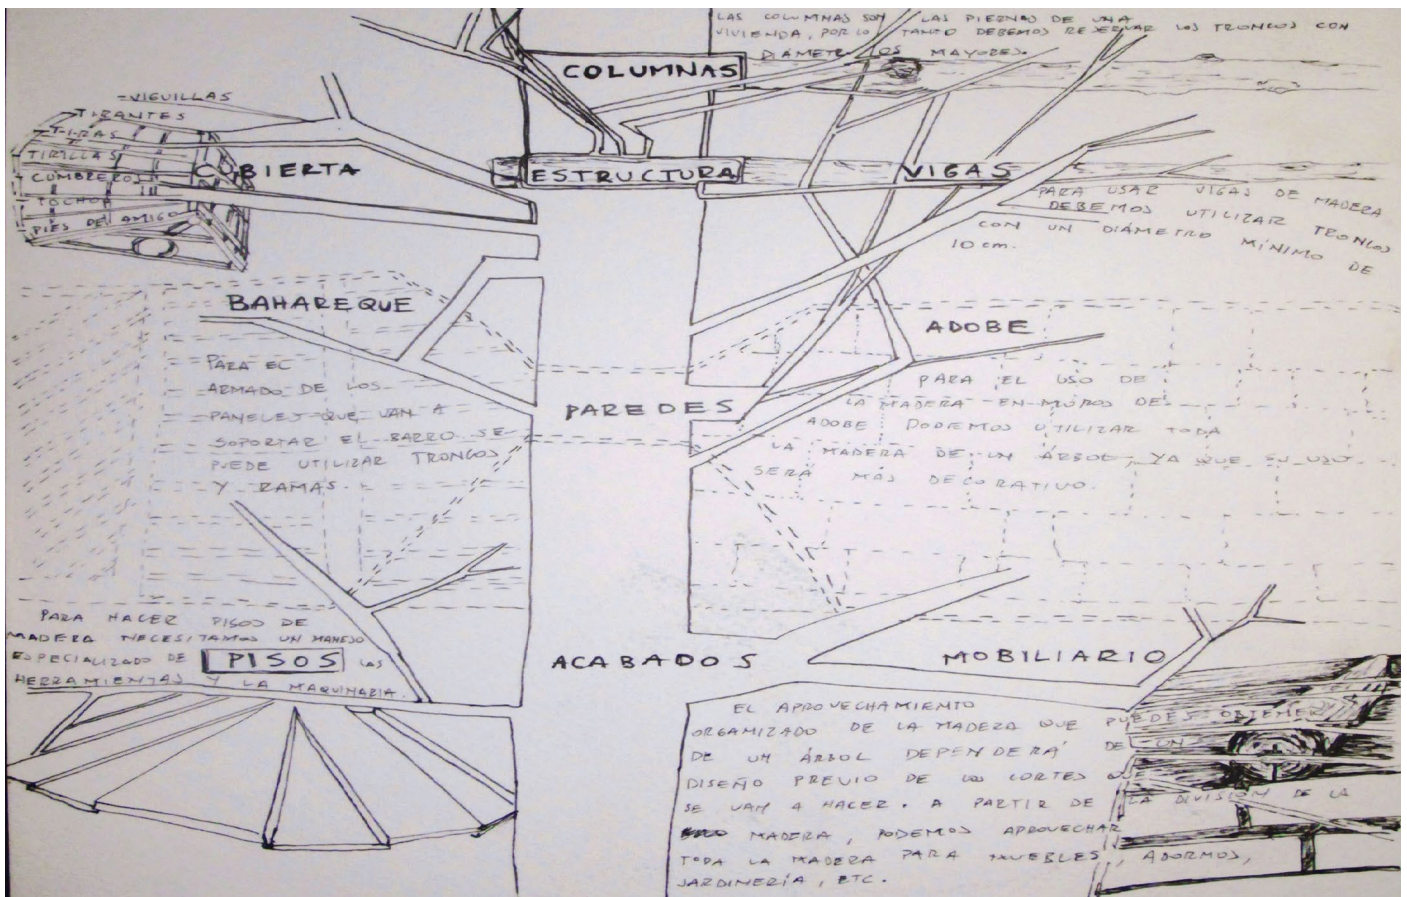 LAS COLUMNAS SON LAS PIERNAS DE UNA
VIVIENDA, POR LO TANTO DEBEMOS RESERVAR LOS TRONCOS CON
DIÁMETROS MAYORES.
COLUMNAS
VIGUILLAS
TIRANTES
TIRAS
TIRILLAS
CUMBREROS
TOCHOS
PIES DE AMIGO
CUBIERTA
ESTRUCTURA
VIGAS
PARA USAR VIGAS DE MADERA
DEBEMOS UTILIZAR TRONCOS
CON UN DIÁMETRO MÍNIMO DE
10 cm.
BAHAREQUE
PARA EL
ARMADO DE LOS
PANELES QUE VAN A
SOPORTAR EL BARRO SE
PUEDE UTILIZAR TRONCOS
Y RAMAS.
PAREDES
ADOBE
PARA EL USO DE
LA MADERA EN MUROS DE
ADOBE PODEMOS UTILIZAR TODA
LA MADERA DE UN ÁRBOL, YA QUE SU USO
SERÁ MÁS DECORATIVO.
PARA HACER PISOS DE
MADERA NECESITAMOS UN MANEJO
ESPECIALIZADO DE PISOS LAS
HERRAMIENTAS Y LA MAQUINARIA.
ACABADOS
MOBILIARIO
EL APROVECHAMIENTO
ORGANIZADO DE LA MADERA QUE PUEDES OBTENER
DE UN ÁRBOL DEPENDERÁ DE UN
DISEÑO PREVIO DE LOS CORTES QUE
SE VAN A HACER. A PARTIR DE LA DIVISIÓN DE LA
MADERA, PODEMOS APROVECHAR
TODA LA MADERA PARA MUEBLES, ADORNOS,
JARDINERÍA, ETC.